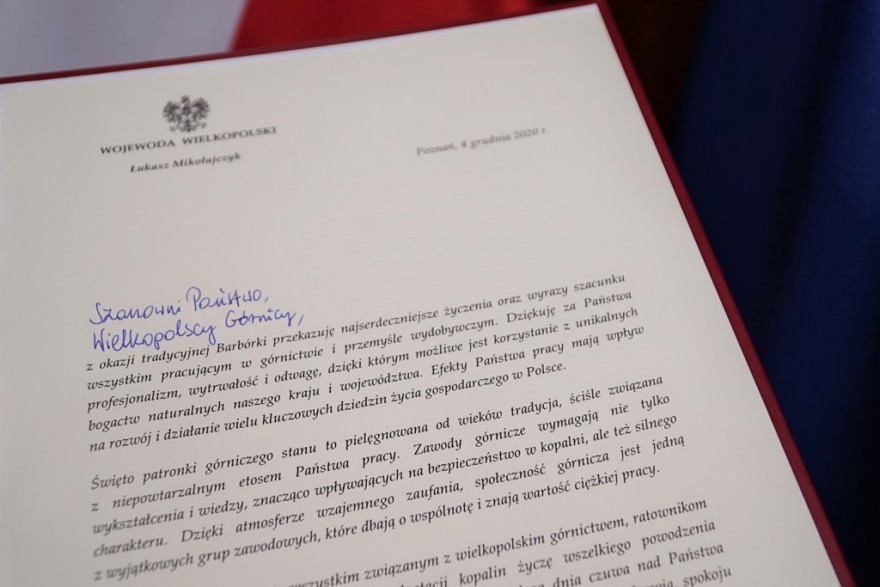 WOJEWODA WIELKOPOLSKI
Łukasz Mikołajczyk
Poznań, 4 grudnia 2020 r.
Szanowni Państwo,
Wielkopolscy Górnicy,
z okazji tradycyjnej Barbórki przekazuję najserdeczniejsze życzenia oraz wyrazy szacunku
wszystkim pracującym w górnictwie i przemyśle wydobywczym. Dziękuję za Państwa
profesjonalizm, wytrwałość i odwagę, dzięki którym możliwe jest korzystanie z unikalnych
bogactw naturalnych naszego kraju i województwa. Efekty Państwa pracy mają wpływ
na rozwój i działanie wielu kluczowych dziedzin życia gospodarczego w Polsce.
Święto patronki górniczego stanu to pielęgnowana od wieków tradycja, ściśle związana
z niepowtarzalnym etosem Państwa pracy. Zawody górnicze wymagają nie tylko
wykształcenia i wiedzy, znacząco wpływających na bezpieczeństwo w kopalni, ale też silnego
charakteru. Dzięki atmosferze wzajemnego zaufania, społeczność górnicza jest jedną
z wyjątkowych grup zawodowych, które dbają o wspólnotę i znają wartość ciężkiej pracy.
związanym z wielkopolskim górnictwem, ratownikom
kopalin życzę wszelkiego powodzenia
dnia czuwa nad Państwa
spokoju